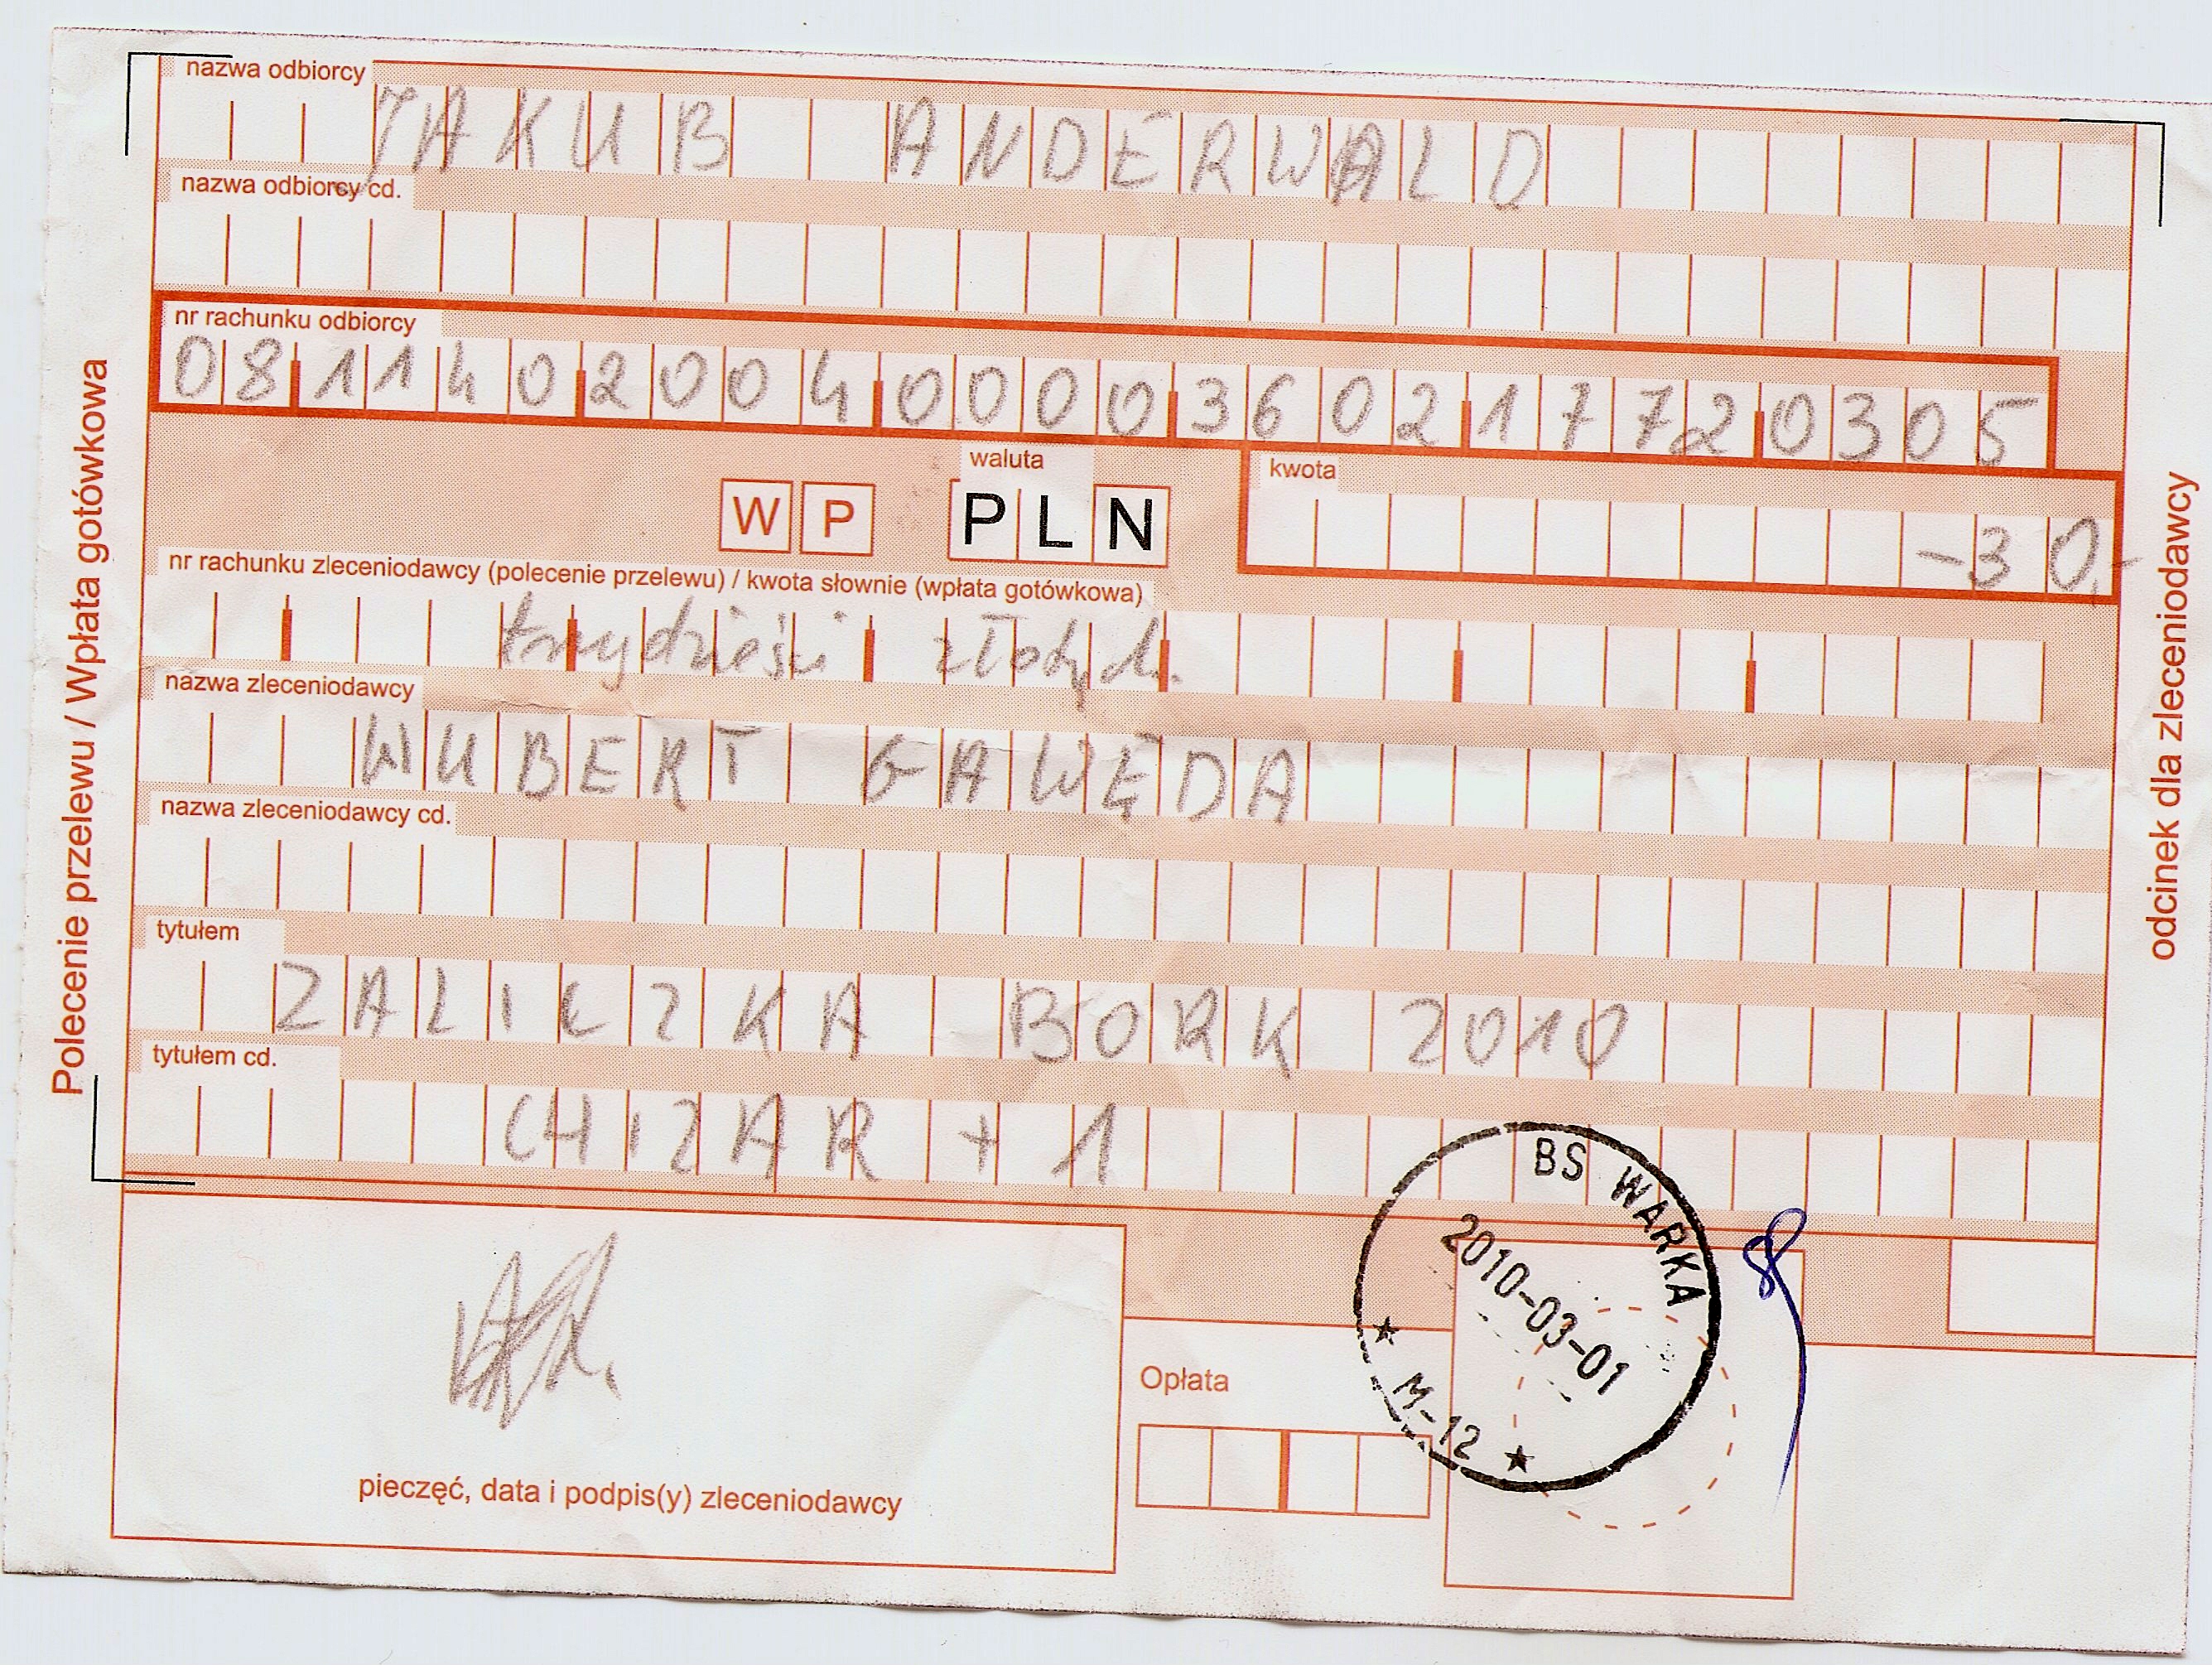 nazwa odbiorcy
JAKUB ANDERWALD
nazwa odbiorcy cd.
nr rachunku odbiorcy
08 1140 2004 0000 3602 1772 0305
waluta
kwota
W P PLN
-30,-
nr rachunku zleceniodawcy (polecenie przelewu) / kwota słownie (wpłata gotówkowa)
trzydzieści złotych.
nazwa zleceniodawcy
WUBERT GAWĘDA
nazwa zleceniodawcy cd.
tytułem
ZALICZKA BORK 2010
tytułem cd.
CHIZAR + 1
BS WARKA
2010-03-01
M-12
Opłata
pieczęć, data i podpis(y) zleceniodawcy
Polecenie przelewu / Wpłata gotówkowa
odcinek dla zleceniodawcy